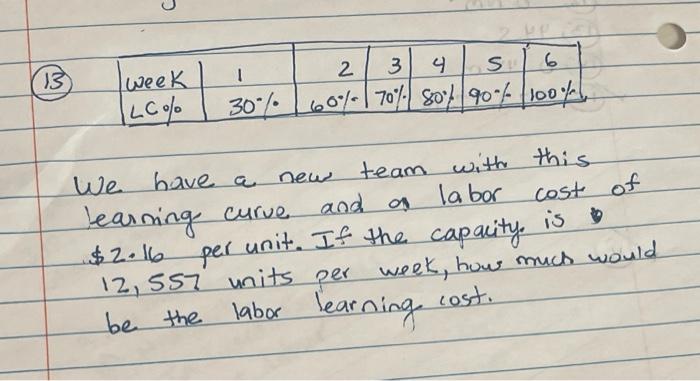 13
Week 1 2 3 4 5 6
LC% 30% 60% 70% 80% 90% 100%
We have a new team with this
learning curve and a labor cost of
$2.16 per unit. If the capacity is
12,557 units per week, how much would
be the labor learning cost.